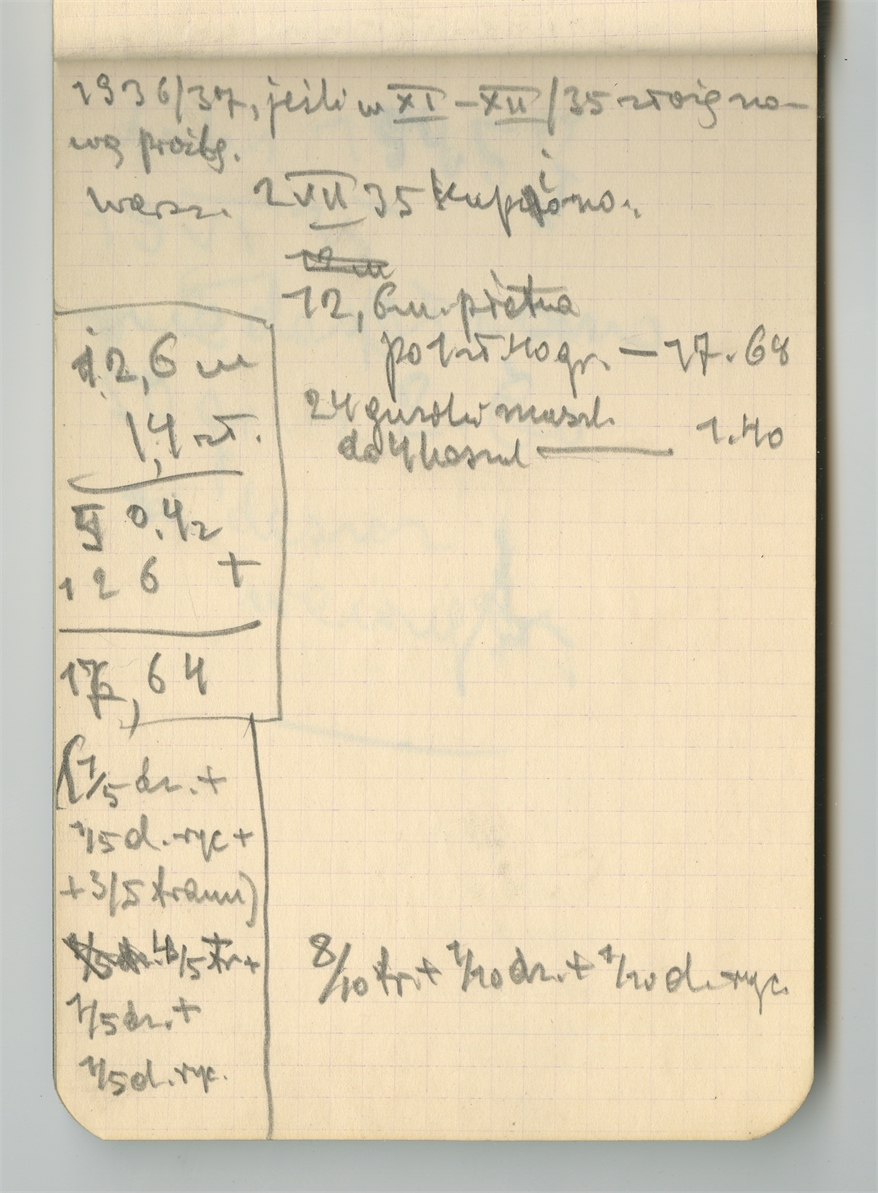 1936/37, jeśli w XI – XII/35 złożę no-
wą prośbę.
warsz. 2 VII 35 Kupiono.
12,6 m. płótna
po 1 zł 40 gr. — 17.68
24 guziki
do 4 koszul — 1.40
12,6 m
1,4 zł.
5 0.42
12 6 +
17,64
(1/5 dr. +
1/5 d. ryc +
+ 3/5 tranu)
4/5 tr. +
1/5 dr. +
1/5 d. ryc.
8/10 tr. + 1/10 dr. + 1/10 d. ryc.